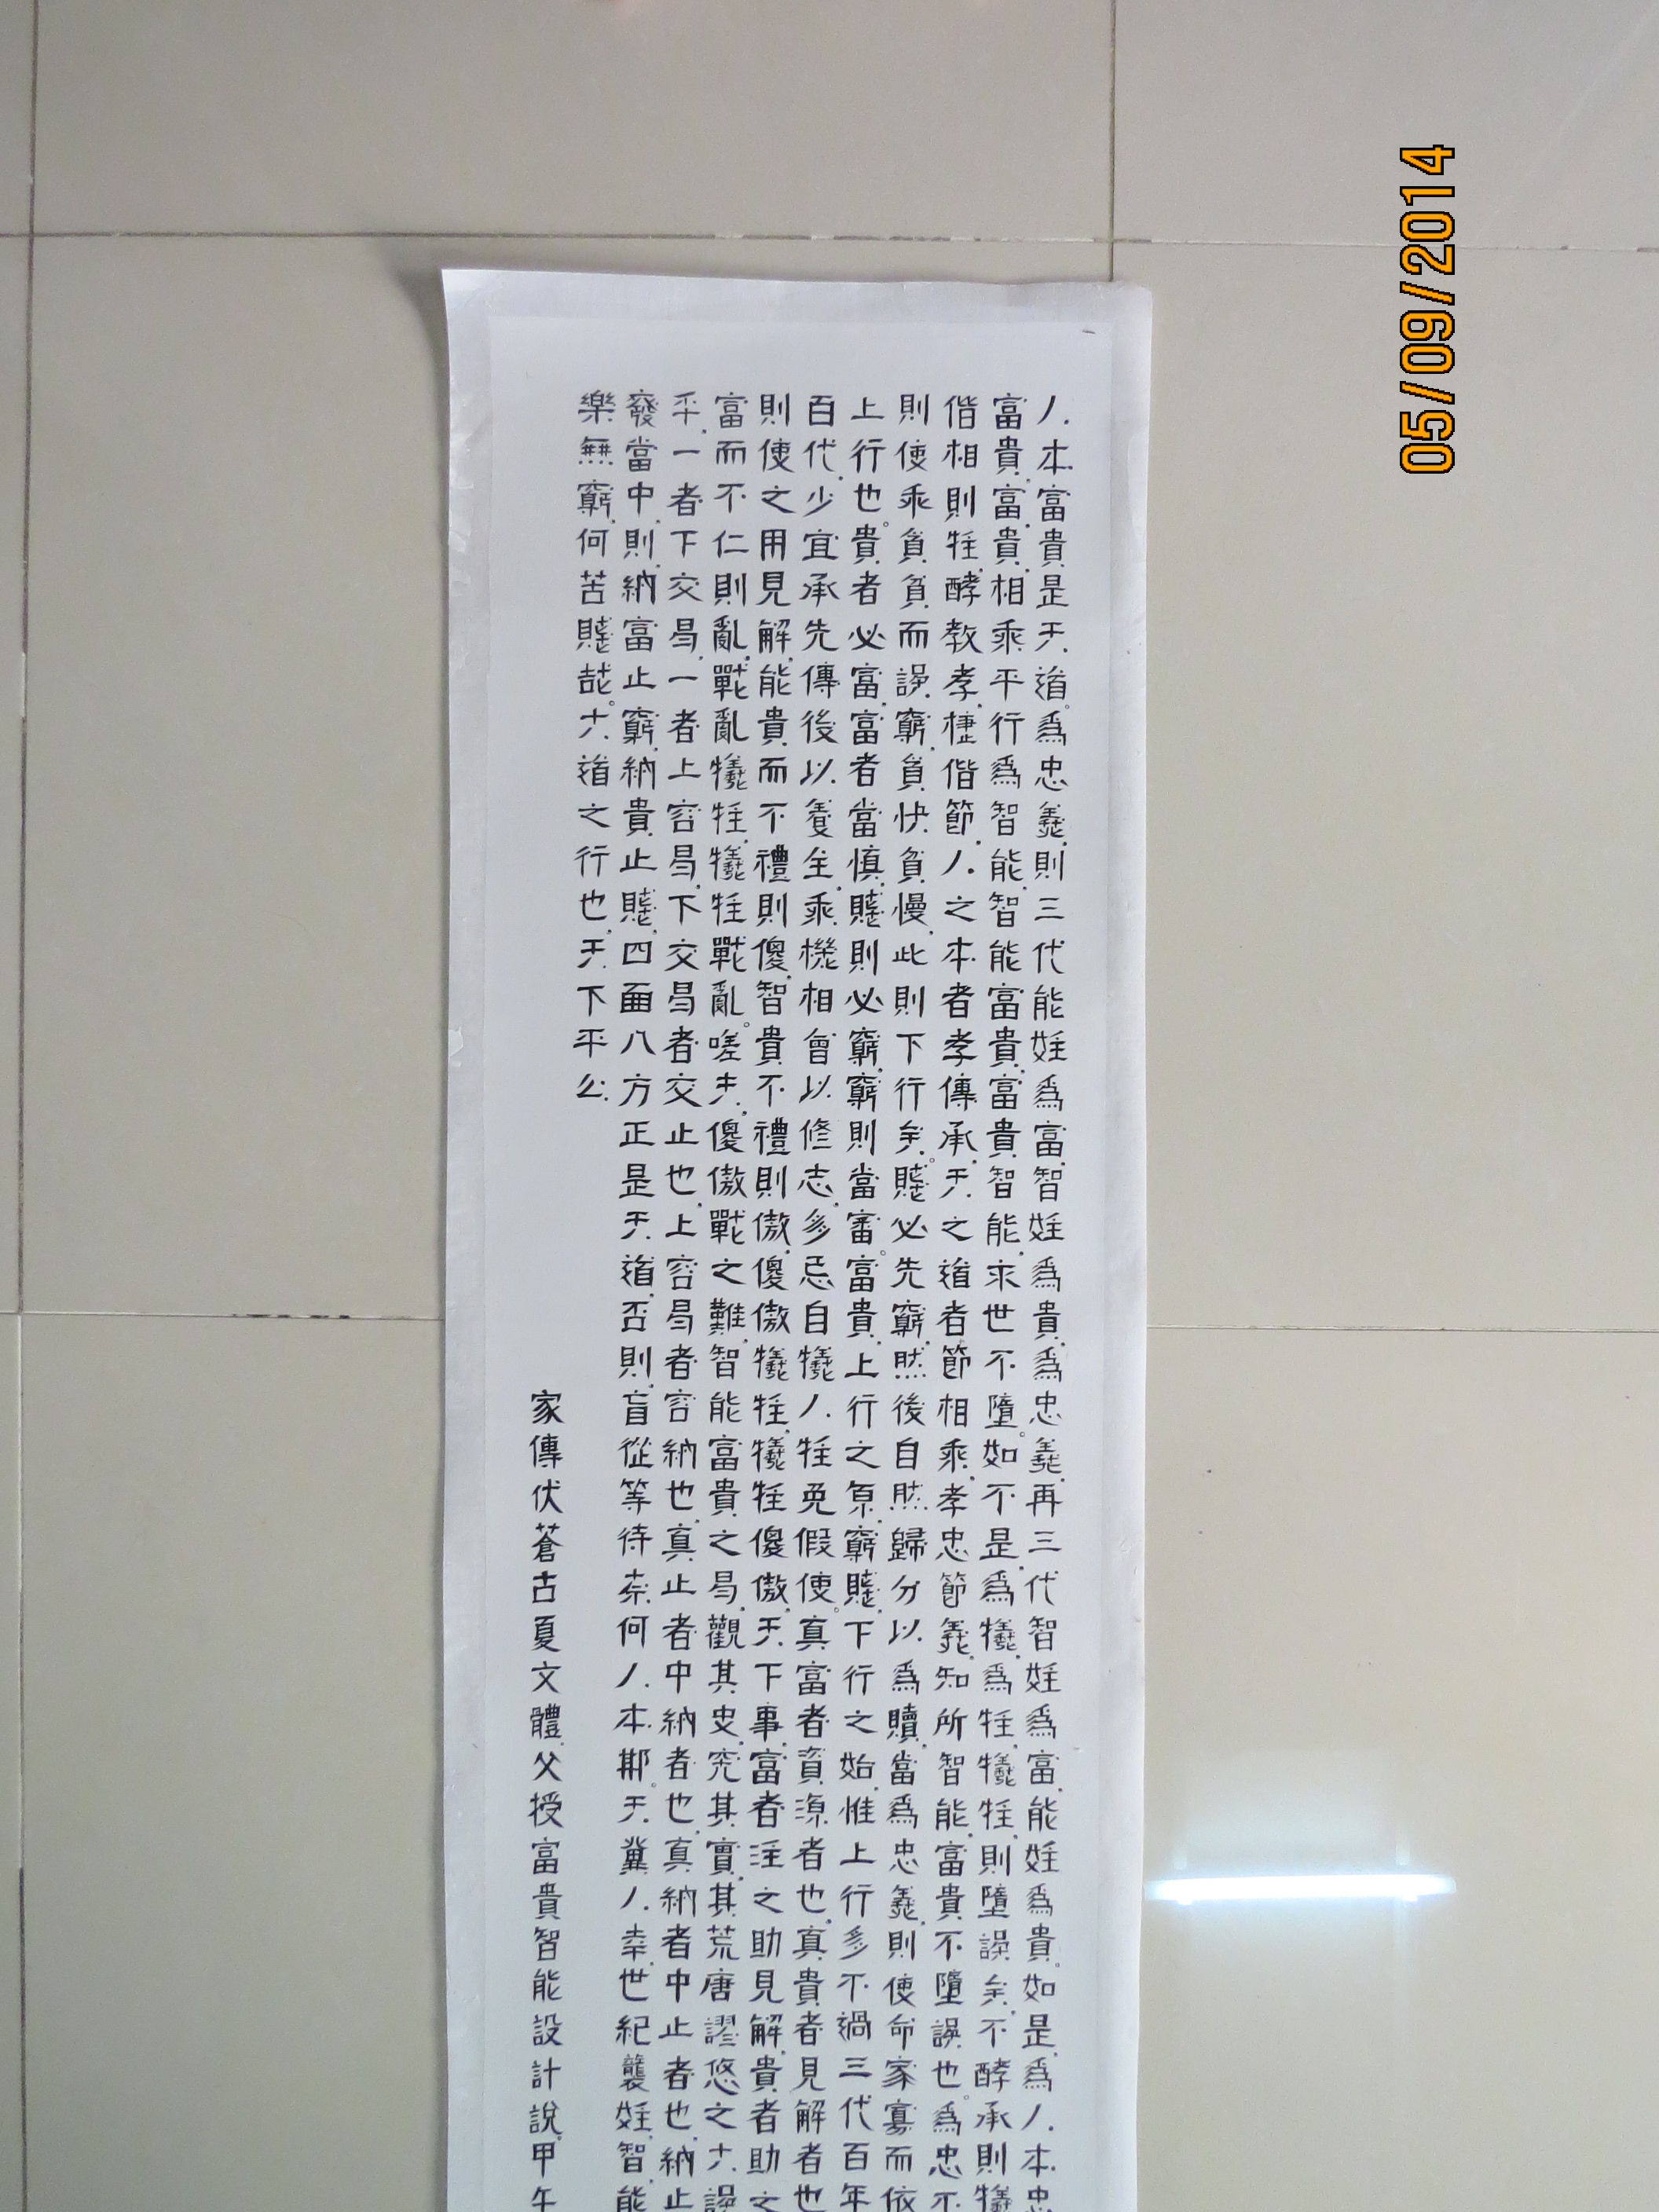 人本富貴是天道。為忠義則三代能姓為富智姓為貴為忠義再三代智姓為富能姓為貴。如是為人本忠
富貴富貴相乘平行為智能智能富貴富貴智能求世不墮。如不是為犧為牲犧牲則墮誤矣不酵承則犧
偕相則牲酵教孝棲偕節人之本者孝傳承天之道者節相乘孝忠節義知所智能富貴不墮誤也。為忠不
則使乘貧貧而誤窮貧快貧慢此則下行矣。賤必先窮然後自然歸分以為贖當為忠義則使命家寡而依
上行也。貴者必富富者當慎賤則必窮窮則當審。富貴上行之原窮賤下行之始惟上行多不過三代百年
百代少宜承先傳後以養全乘機相會以修志多忌自犧人牲免假使。真富者資源者也真貴者見解者也
則使之用見解能貴而不禮則傻智貴不禮則傲傻傲犧牲犧牲傻傲天下事富者注之助見解貴者助之
富而不仁則亂戰亂犧牲犧牲戰亂。嗟夫傻傲戰之難智能富貴之易觀其史究其實其荒唐謬悠之大誤
平一者下交易一者上容易下交易者交止也上容易者容納也真止者中納者也真納者中止者也納止
發當中則納富止窮納貴止賤四面八方正是天道否則盲從等待奈何人本耶。天冀人幸世紀襲姓智能
樂無窮何苦賤哉。大道之行也天下平公
家傳伏蒼古夏文體父授富貴智能設計說。甲午
05/09/2014